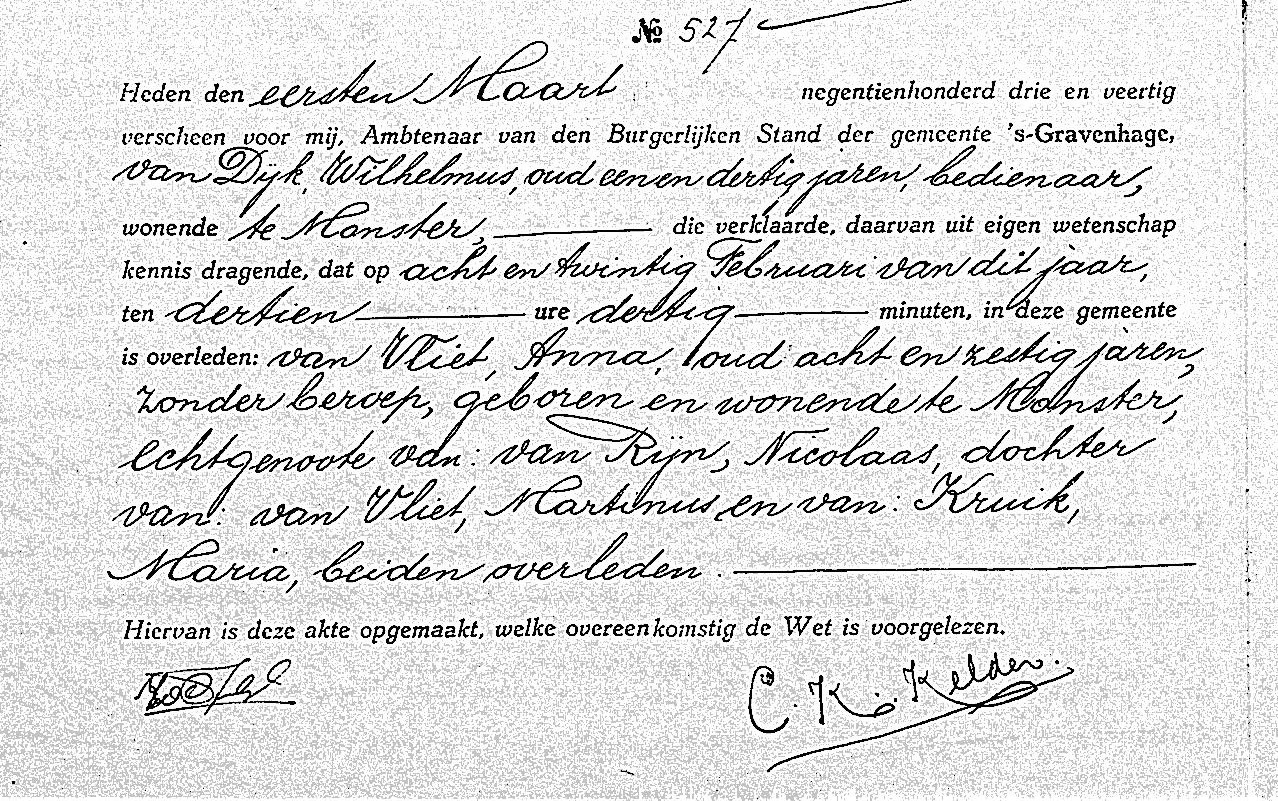 № 527
Heden den eersten Maart negentienhonderd drie en veertig
verscheen voor mij, Ambtenaar van den Burgerlijken Stand der gemeente 's-Gravenhage,
van Dijk, Wilhelmus, oud een en dertig jaren, bedienaar,
wonende te Monster, die verklaarde, daarvan uit eigen wetenschap
kennis dragende, dat op acht en twintig Februari van dit jaar,
ten dertien ure dertig minuten, in deze gemeente
is overleden: van Vliet, Anna, oud acht en zestig jaren,
zonder beroep, geboren en wonende te Monster,
echtgenoote van: van Rijn, Nicolaas, dochter
van: van Vliet, Martinus en van: Kruik,
Maria, beiden overleden.
Hiervan is deze akte opgemaakt, welke overeenkomstig de Wet is voorgelezen.
C. K. Kelder.